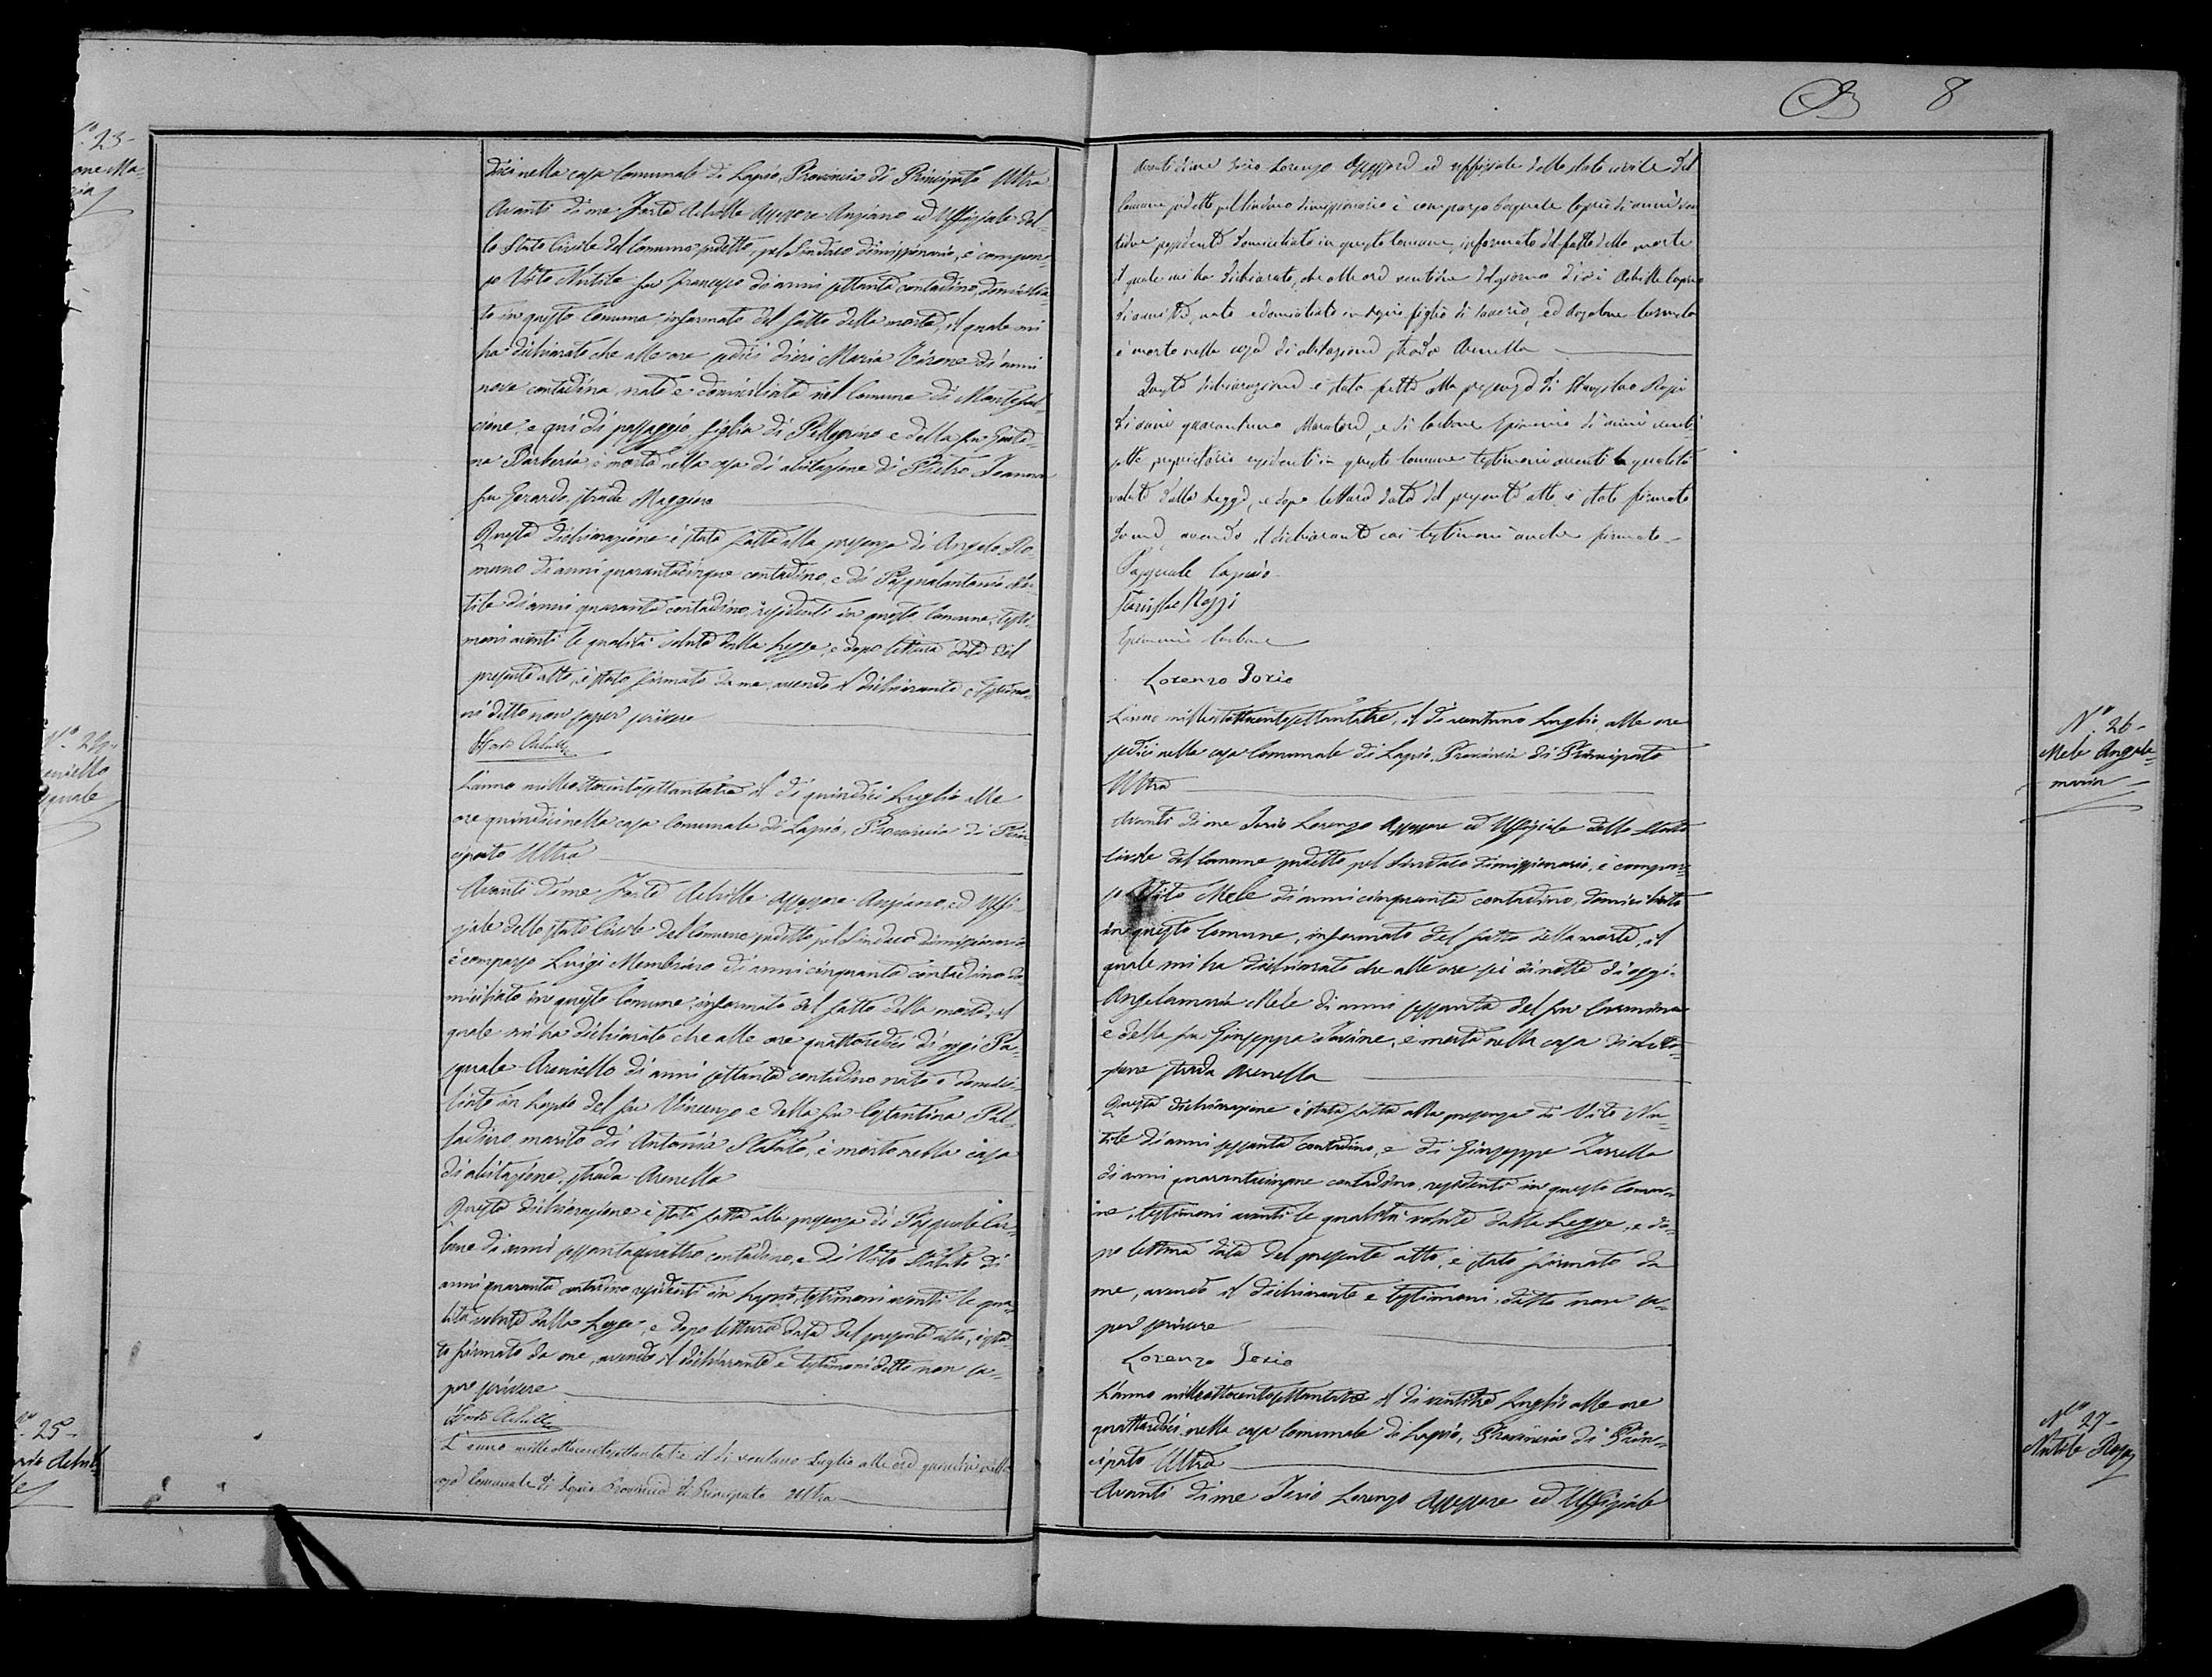 N.º 23-
one Ma-
ria
dici nella casa Comunale di Lapio, Provincia di Principato Ultra
Avanti di me Forte Achille Assessore Anziano ed Uffiziale del-
lo Stato Civile del Comune predetto, pel Sindaco dimissionario, è compar-
so Vito Nutile fu Francesco di anni settanta contadino, domicilia-
to in questo Comune, informato del fatto della morte, il quale mi
ha dichiarato che alle ore sedici d'ieri Maria Tirone di anni
nove contadina, nata e domiciliata nel Comune di Montefal-
cione, e qui di passaggio, figlia di Pellegrino e della fu
na Barberia è morta nella casa di abitazione di Pietro
fu Gerardo, strada Maggiore
Questa dichiarazione è stata fatta alla presenza di Angelo Ro-
mano di anni quarantacinque contadino, e di Pasqualantonio Nu-
tile di anni quaranta contadino, residenti in questo Comune, testi-
moni aventi le qualità volute dalla Legge, e dopo lettura data del
presente atto, è stato firmato da me, avendo il dichiarante e testimo-
ni detto non saper scrivere
Forte Achille
N.º 24-
eniello
squale
L'anno milleottocentosettantatre il dì quindici Luglio alle
ore quindici nella casa Comunale di Lapio, Provincia di Prin-
cipato Ultra
Avanti di me Forte Achille Assessore Anziano, ed Uffi-
ziale dello stato Civile del Comune predetto pel Sindaco dimissionario
è comparso Luigi Membrino di anni cinquanta contadino do-
miciliato in questo Comune, informato del fatto della morte, il
quale mi ha dichiarato che alle ore quattordici di oggi Pa-
squale Areniello di anni settanta contadino nato e domici-
liato in Lapio del fu Vincenzo e della fu Costantina Pal-
ladino marito di Antonia Stabito, è morto nella casa
di abitazione, strada Arenella
Questa dichiarazione è stata fatta alla presenza di Pasquale Car-
bone di anni sessantaquattro contadino, e di Vito Stabito di
anni quaranta contadino residenti in Lapio, testimoni aventi le qua-
lità volute dalla Legge, e dopo lettura data del presente atto, è sta-
to firmato da me, avendo il dichiarante e testimoni detto non sa-
pere scrivere
Forte Achille
N.º 25-
Achil-
le
L'anno milleottocentosettantatre il dì ventuno Luglio alle ore quindici nella
casa Comunale di Lapio Provincia di Principato Ultra
8
Avanti di me Iorio Lorenzo Assessore ed uffiziale dello stato civile del
Comune predetto pel Sindaco dimissionario è comparso Pasquale Caprio di anni ven-
tidue possidente domiciliato in questo Comune, informato del fatto della morte
il quale mi ha dichiarato, che alle ore ventidue del giorno d'ieri Achille Caprio
di anni tre, nato e domiciliato in Lapio figlio di Saverio, ed
è morto nella casa di abitazione strada Arenella
Questa dichiarazione è stata fatta alla presenza di Stanislao Rossi
di anni quarantuno Muratore, e di Carbone Epimenio di anni venti-
sette proprietario residenti in questo Comune testimoni aventi le qualità
volute dalla Legge, e dopo lettura data del presente atto è stato firmato
da me, avendo il dichiarante coi testimoni anche firmato
Pasquale Caprio
Stanislao Rossi
Epimenio Carbone
Lorenzo Iorio
N.º 26-
Mele Angela-
maria
L'anno milleottocentosettantatre, il dì ventuno Luglio, alle ore
sedici nella casa Comunale di Lapio, Provincia di Principato
Ultra
Avanti di me Iorio Lorenzo Assessore ed Uffiziale dello Stato
Civile del Comune predetto pel Sindaco dimissionario, è compar-
so Vito Mele di anni cinquanta contadino, domiciliato
in questo Comune, informato del fatto della morte, il
quale mi ha dichiarato che alle ore sei di notte di oggi
Angelamaria Mele di anni sessanta del fu Carmine
e della fu Giuseppa Iovine, è morta nella casa di abita-
zione strada Arenella
Questa dichiarazione è stata fatta alla presenza di Vito Nu-
tile di anni sessanta contadino, e di Giuseppe Zarrella
di anni quarantacinque contadino, residenti in questo Comu-
ne, testimoni aventi le qualità volute dalla Legge, e do-
po lettura data del presente atto, è stato firmato da
me, avendo il dichiarante e testimoni detto non sa-
per scrivere
Lorenzo Iorio
N.º 27-
Nutile Rosa
L'anno milleottocentosettantatre il dì ventitre Luglio alle ore
quattordici, nella casa Comunale di Lapio, Provincia di Prin-
cipato Ultra
Avanti di me Iorio Lorenzo Assessore ed Uffiziale